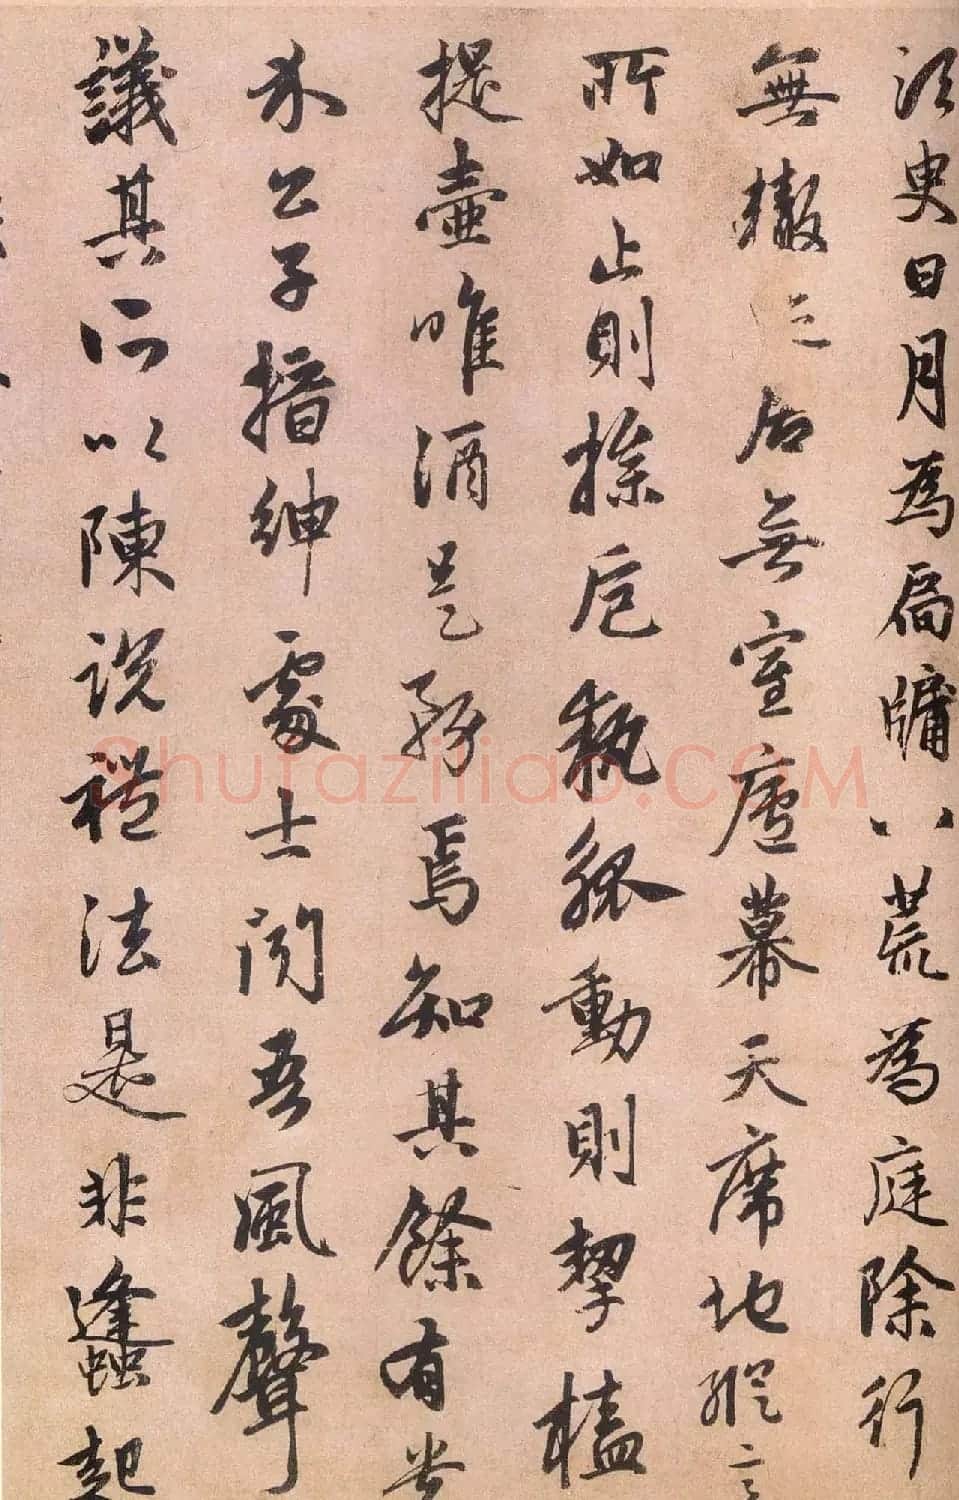 須臾日月為扃牖八荒為庭除行
無轍居無室廬幕天席地縱
所如止則操卮執觚動則挈榼
提壺唯酒是務焉知其餘有貴
介公子搢紳處士聞吾風聲
議其所以陳說禮法是非蠭起
Shufaziliao.COM